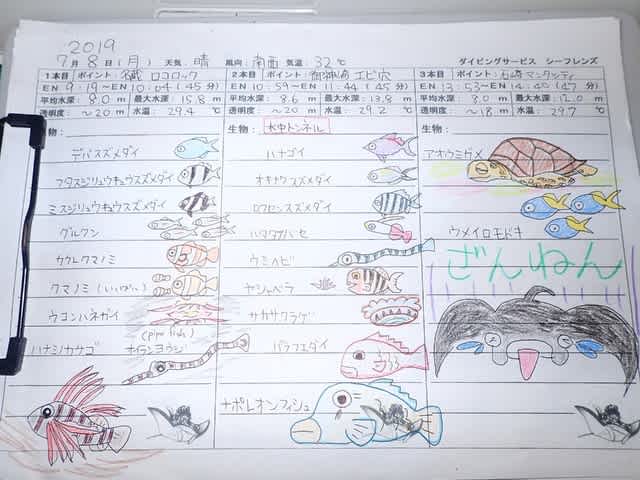 2019
7月 8日(月) 天気:晴 風向:南西 気温:32℃ ダイビングサービス シーフレンズ
1本目 ポイント:名蔵 ロコロック
EN 9:19~EN 10:04(45分)
平均水深: 8.0 m 最大水深: 15.8 m
透明度: ~20 m 水温: 29.4 ℃
生物:
デバスズメダイ
フタスジリュウキュウスズメダイ
ミスジリュウキュウスズメダイ
グルクン
カクレクマノミ
クマノミ(いっぱい)
ウコンハネガイ
(pipe fish)
ハナミノカサゴ オイランヨウジ
2本目 ポイント:御神崎 エビ穴
EN 10:59~EN 11:44(45分)
平均水深: 8.6 m 最大水深: 13.8 m
透明度: ~20 m 水温: 29.2 ℃
生物: 水中トンネル
ハナゴイ
オキナワスズメダイ
ロクセンスズメダイ
ハマクマハゼ
ウミヘビ
ヤシャベラ
サカサクラゲ
バラフエダイ
ナポレオンフィッシュ
3本目 ポイント:石崎 マンタシティ
EN 13:53~EN 14:40(47分)
平均水深: 8.0 m 最大水深: 12.0 m
透明度: ~18 m 水温: 29.7 ℃
生物:
アオウミガメ
ウメイロモドキ
ざんねん